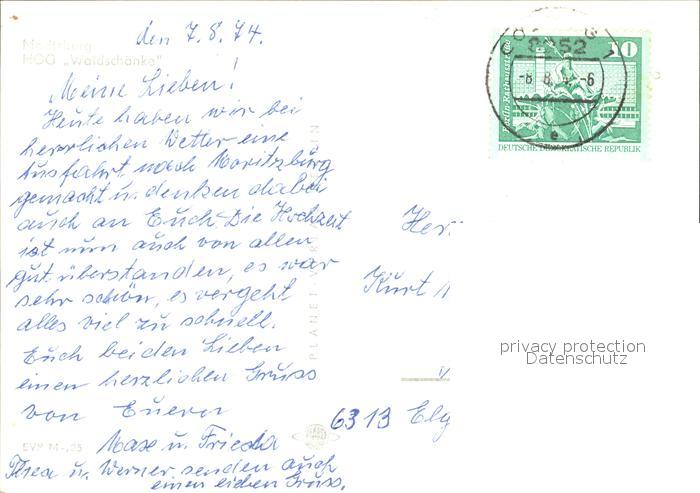 den 7.8.74.
Moritzburg
HOG „Waldschänke"
Meine Lieben!
Heute haben wir bei
herrlichen Wetter eine
Ausfahrt nach Moritzburg
gemacht u. denken dabei
auch an Euch. Die Hochzeit
ist nun auch von allen
gut überstanden, es war
sehr schön, es vergeht
alles viel zu schnell.
Euch beiden Lieben
einen herzlichen Gruss
von Euern
Maxe u. Frieda
Thea u. Werner senden auch
einen lieben Gruss.
EVP M -,25
PLANET
10
DEUTSCHE DEMOKRATISCHE REPUBLIK
8252
-8.8.74-6
e
Her
Kurt
6313 Elg
privacy protection
Datenschutz